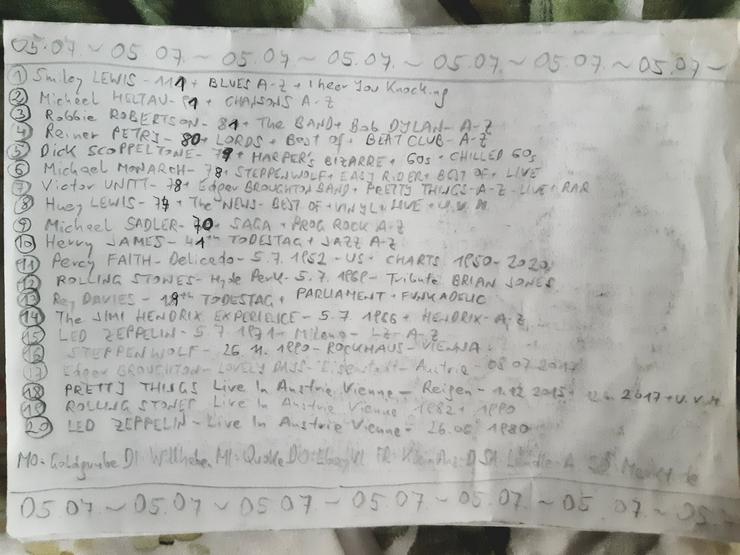 05.07 ~ 05.07. ~ 05.07 ~ 05.07. ~ 05.07 ~ 05.07. ~ 05.07 ~
① Smiley LEWIS - 111 + BLUES A-Z + I hear You Knocking
② Michael HELTAU - 91 + CHANSONS A-Z
③ Robbie ROBERTSON - 81 + The BAND + Bob DYLAN - A-Z
④ Reiner PETRY - 80 + LORDS + Best of + BEAT CLUB - A-Z
⑤ Dick SCOPPELTONE - 79 + HARPER'S BIZARRE + 60s + CHILLED 60s
⑥ Michael MONARCH - 78 + STEPPENWOLF + EASY RIDER + BEST OF + LIVE
⑦ Victor UNITT - 78 + Edgar BROUGHTON BAND + PRETTY THINGS - A-Z - LIVE + RAR
⑧ Huey LEWIS - 74 + The NEWS - BEST OF + VINYL + LIVE + U.V.M.
⑨ Michael SADLER - 70 + SAGA + PROG ROCK A-Z
⑩ Harry JAMES - 41th TODESTAG + JAZZ A-Z
⑪ Percy FAITH - Delicado - 5.7.1952 - US - CHARTS 1950-2020
⑫ ROLLING STONES - Hyde Park - 5.7.1969 - Tribute BRIAN JONES
⑬ Ray DAVIES - 19th TODESTAG + PARLIAMENT + FUNKADELIC
⑭ The JIMI HENDRIX EXPERIENCE - 5.7.1966 + HENDRIX - A-Z
⑮ LED ZEPPELIN - 5.7.1971 - Milano - LZ - A-Z
⑯ STEPPENWOLF - 26.11.1990 - ROCKHAUS - VIENNA
⑰ Edgar BROUGHTON - LOVELY DAYS - Eisenstadt - Austria - 08.07.2017
⑱ PRETTY THINGS Live In Austria Vienna - Reigen - 1.12.2015 + 2017 + U.V.M.
⑲ ROLLING STONES Live In Austria Vienna 1982 + 1990
⑳ LED ZEPPELIN - Live In Austria Vienna - 26.06.1980
MO - Goldgrube DI - MI - DO - FR - SA -
05.07 ~ 05.07. ~ 05.07 ~ 05.07. ~ 05.07 ~ 05.07. ~ 05.